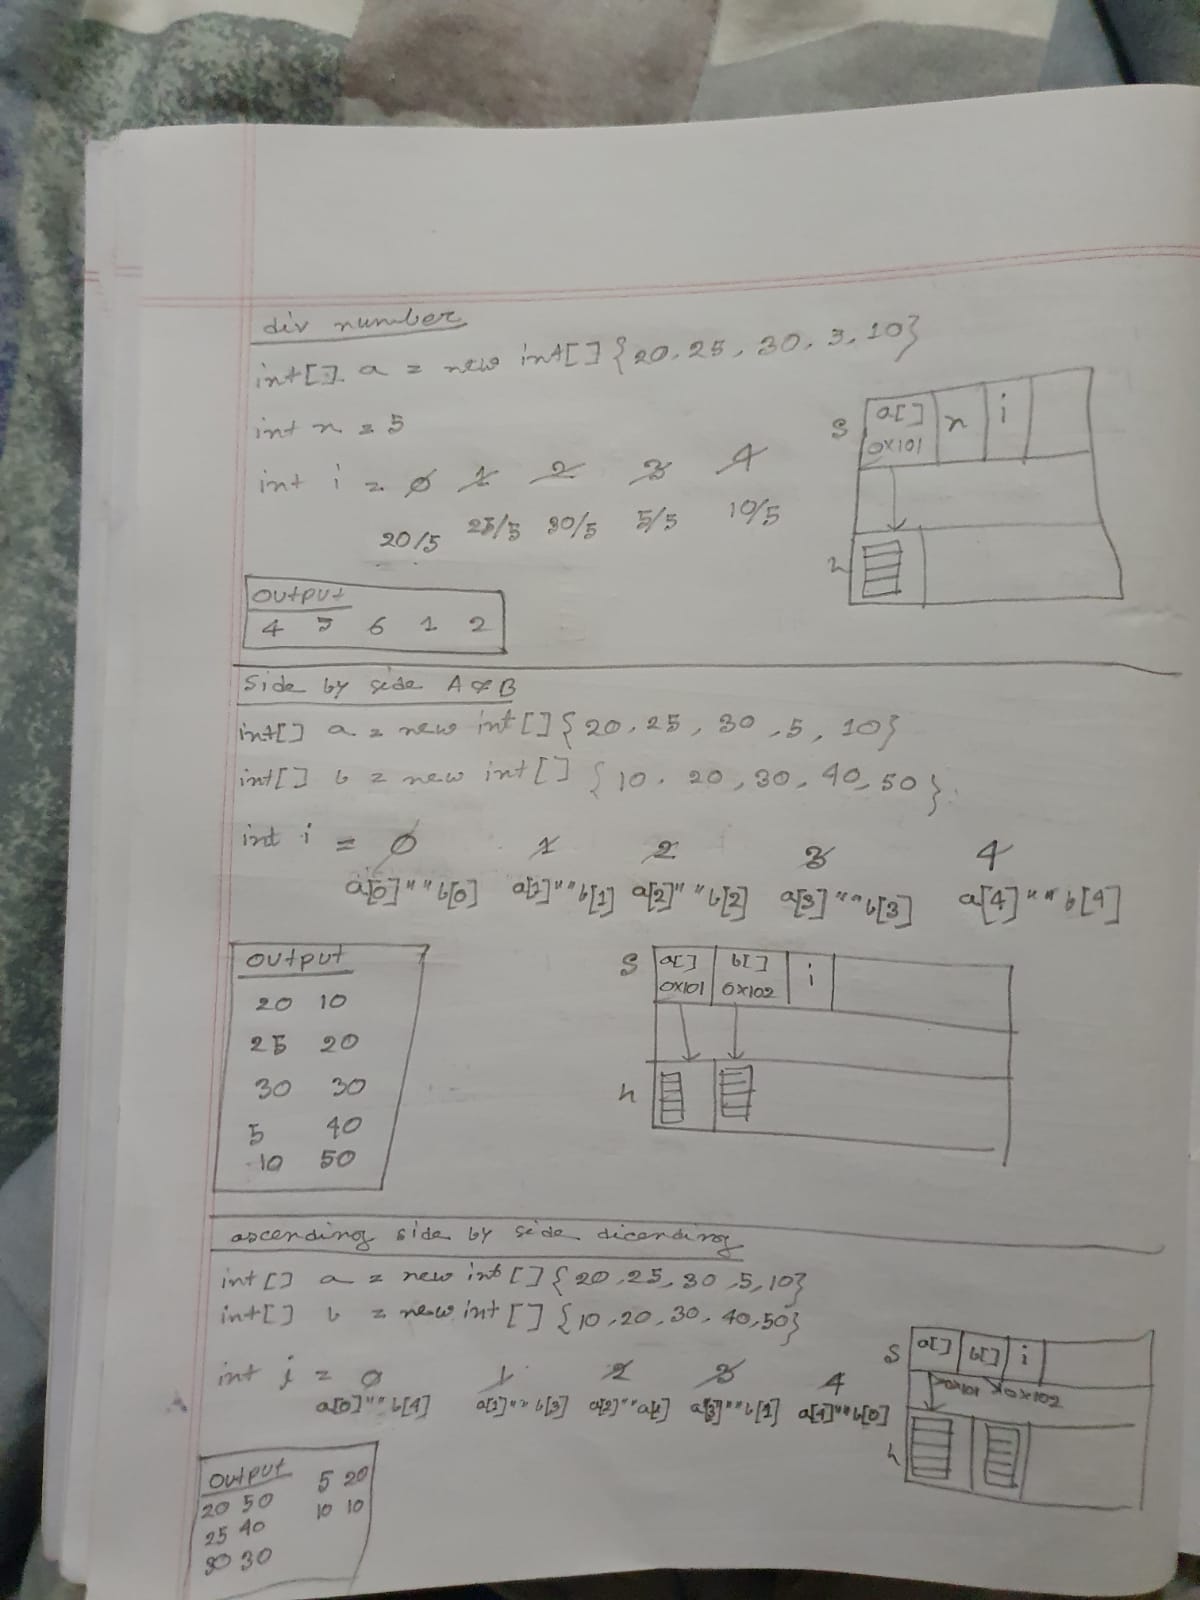 div number
int[] a = new int[] {20, 25, 30, 3, 10}
int n = 5
int i = 0 1 2 3 4
20/5 25/5 30/5 5/5 10/5
S a[] n i
0x101
h
output
4 5 6 1 2
Side by side A & B
int[] a = new int[] {20, 25, 30, 5, 10}
int[] b = new int[] {10, 20, 30, 40, 50}.
int i = 0 1 2 3 4
a[0]" "b[0] a[1]" "b[1] a[2]" "b[2] a[3]" "b[3] a[4]" "b[4]
output
20 10
25 20
30 30
5 40
10 50
S a[] b[] i
0x101 0x102
h
ascending side by side dicending
int[] a = new int[] {20, 25, 30, 5, 10}
int[] b = new int[] {10, 20, 30, 40, 50}
int i = 0 1 2 3 4
a[0]" "b[4] a[1]" "b[3] a[2]" " a[3]" "b[1] a[4]" "b[0]
S a[] b[] i
0x101 0x102
h
output
20 50
25 40
30 30
5 20
10 10